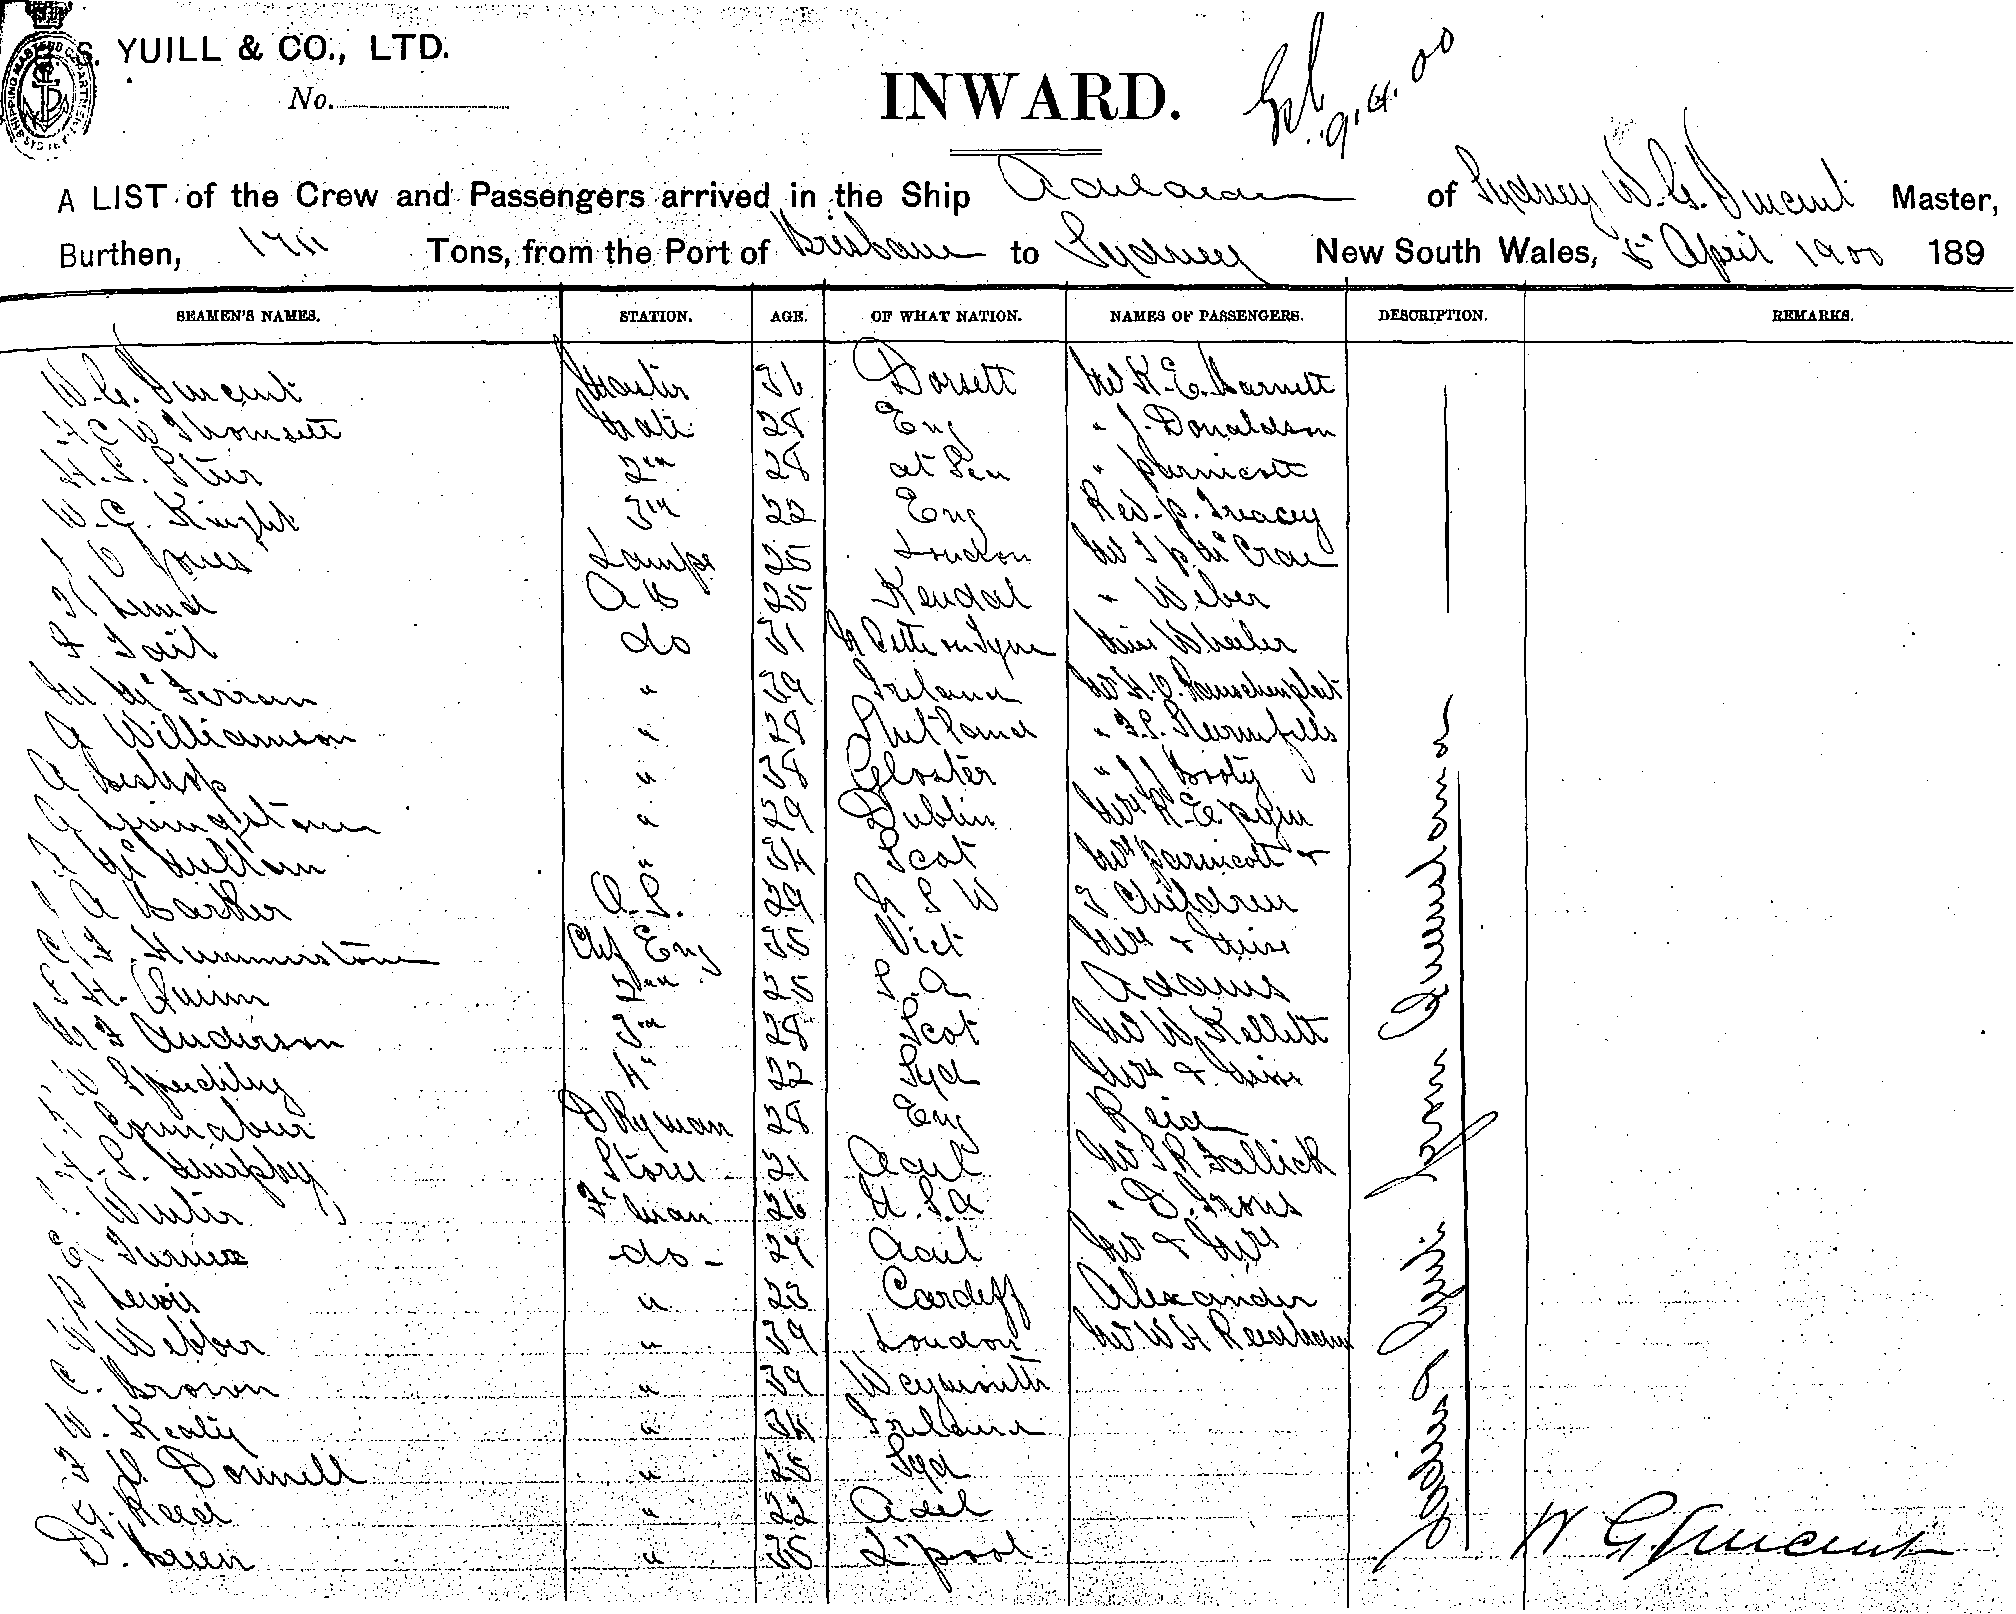 S. YUILL & CO., LTD.
No.
INWARD.
9.4.00
A LIST of the Crew and Passengers arrived in the Ship of Sydney W. G. Vincent Master,
Burthen, Tons, from the Port of Brisbane to Sydney New South Wales, 5 April 1900 189
SEAMEN'S NAMES. STATION. AGE. OF WHAT NATION. NAMES OF PASSENGERS. DESCRIPTION. REMARKS.
W. G. Vincent Master 36 Dorsett Mr K. E. Barnett
H C W Thomsett Mate 28 Eng " J. Donaldson
H. S. 2nd 28 at Sea " Parnicott
W. G. Knight 3rd 22 Eng Rev. P. Treacey
J O Jones Lamps 25 London Mr McCrae
Lund A B 25 Kendal " Weber
F. Tait do 31 N Castle on Tyne Miss Wheeler
M McFerran " 39 Ireland Mr H. O.
G Williamson " 28 Shetland "
A Bishop " 38 Gloster " J J Booty
G Livingstone " 29 Dublin Mrs R. E. Pym
McMillan " 34 Scot Mrs Parnicott &
J A Barker O. S. 29 N S W 3 Children
C F. Hummerstone Chf Eng 35 Vict Mrs & Miss
H. Quinn 2nd 25 S. A Adams
M F Anderson 3rd 28 Scot Mr W. Kellett
W 4" 22 Syd Mrs & Miss
D Kyman 28 Eng Reid
H. S. Murphy Store 21 Adel Mr S R Fallick
J. Winter F'man 26 U. S. A " D. Irons
E. Turner do 27 Adel Mr & Mrs
P Lewis " 23 Cardiff Alexander
W Webber " 39 London Mr W H Needham
C. Brown " 39 Weymouth
W. Kealy " 34 Ireland
F O Donnell " 25 Syd
G. Reed " 22 Adel
D. Green " 35 L'pool
from Queensland
W G Vincent